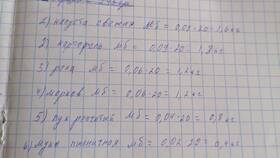 1) капуста свежая Мб = 0,08·20 = 1,6 кг
2) картофель Мб = 0,09·20 = 1,8 кг
3) репа Мб = 0,06·20 = 1,2 кг
4) морковь Мб = 0,06·20 = 1,2 кг
5) лук репчатый Мб = 0,04·20 = 0,8 кг
6) мука пшеничная Мб = 0,02·20 = 0,4 кг